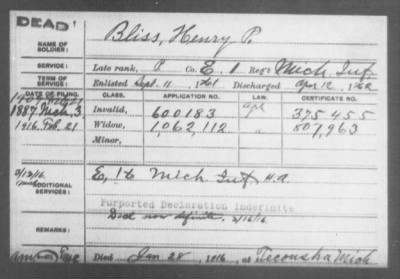 DEAD
Bliss, Henry P.
NAME OF SOLDIER:
SERVICE:
Late rank, P Co. E, 1 Reg't Mich. Inf.
TERM OF SERVICE:
Enlisted Sept. 11, 1861 Discharged Apr 12, 1862
DATE OF FILING. CLASS. APPLICATION NO. LAW. CERTIFICATE NO.
1887 Mch. 3 Invalid, 600183 375455
1916 Feb. 21 Widow, 1,062,112 " 807,963
Minor,
ADDITIONAL SERVICES:
E, 16 Mich Inf
Purported Declaration Indefinite
REMARKS:
Died Jan 28, 1916, at Tekonsha Mich